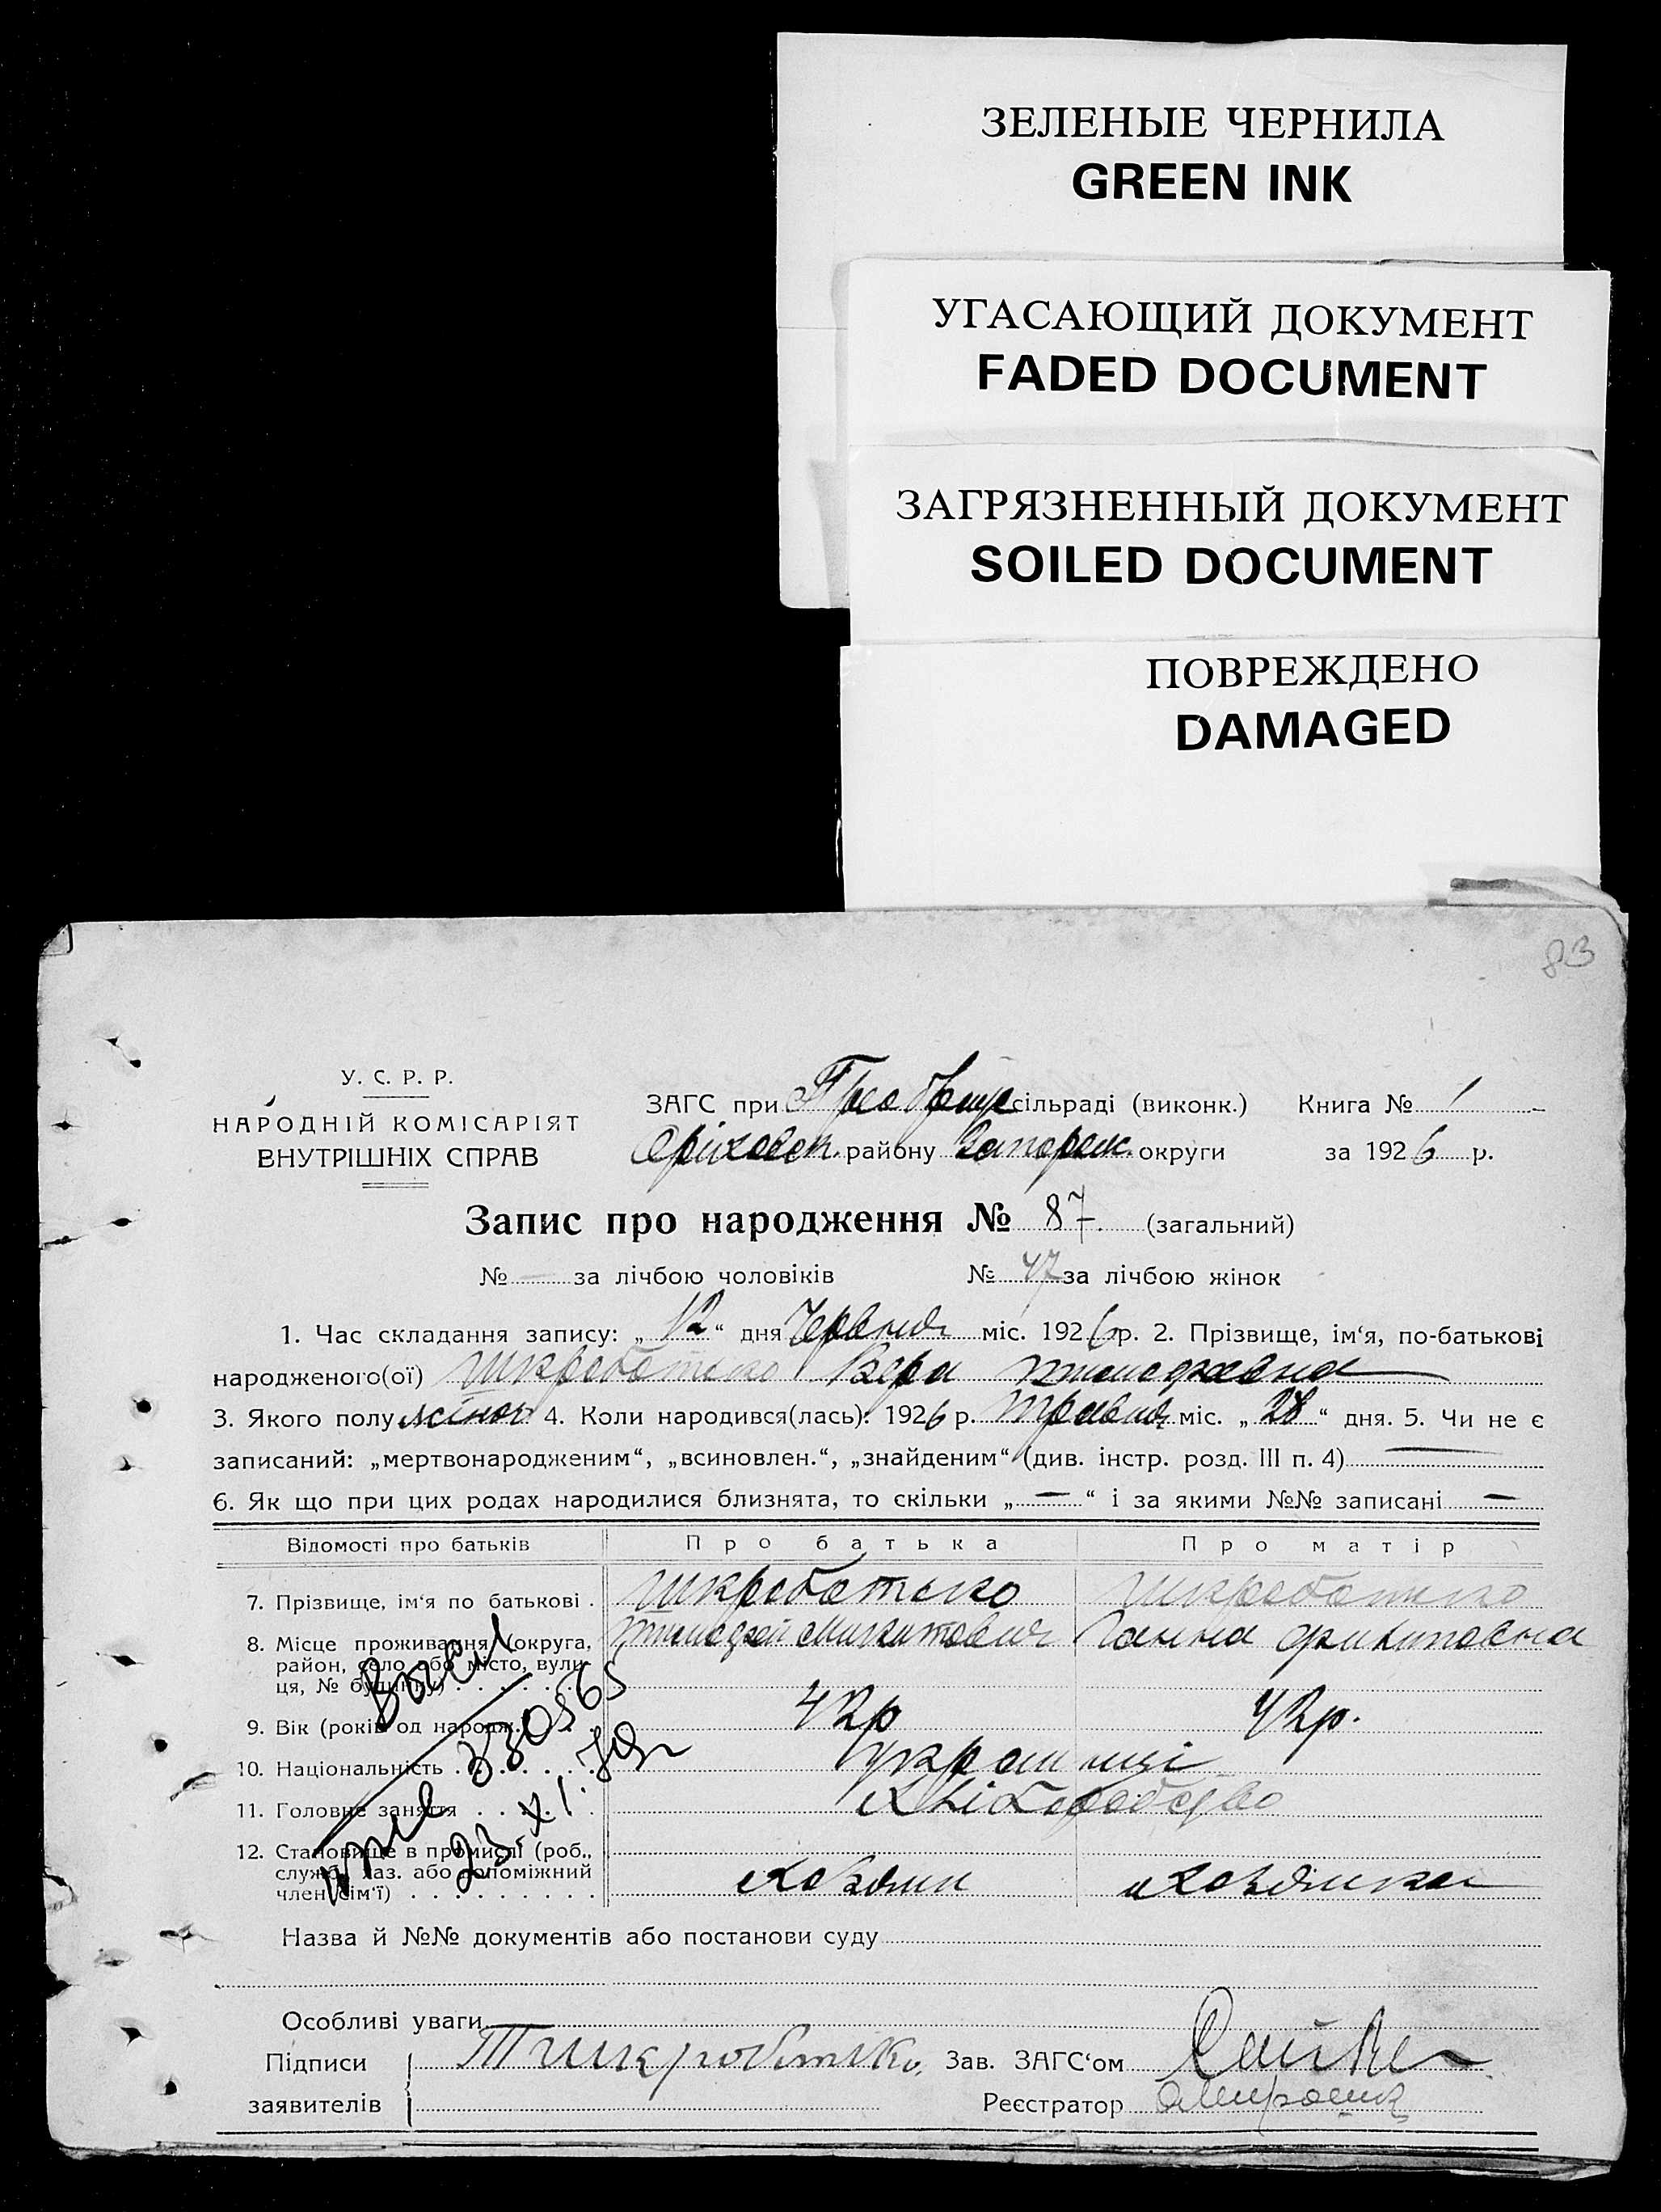 ЗЕЛЕНЫЕ ЧЕРНИЛА
GREEN INK
УГАСАЮЩИЙ ДОКУМЕНТ
FADED DOCUMENT
ЗАГРЯЗНЕННЫЙ ДОКУМЕНТ
SOILED DOCUMENT
ПОВРЕЖДЕНО
DAMAGED
83
У. С. Р. Р.
НАРОДНІЙ КОМІСАРІЯТ
ВНУТРІШНІХ СПРАВ
ЗАГС при сільраді (виконк.) Книга № 1
Оріховськ. району Запорізьк. округи за 1926 р.
Запис про народження № 87. (загальний)
№ — за лічбою чоловіків № 47 за лічбою жінок
1. Час складання запису: „12“ дня Червня міс. 1926 р. 2. Прізвище, ім‘я, по-батькові
народженого(ої) Шкработько Вера Тимофаевна
3. Якого полу жіноч. 4. Коли народився(лась): 1926 р. Травня міс. „28“ дня. 5. Чи не є
записаний: „мертвонародженим“, „всиновлен.“, „знайденим“ (див. інстр. розд. III п. 4) —
6. Як що при цих родах народилися близнята, то скільки „—“ і за якими №№ записані —
Відомості про батьків Про батька Про матір
7. Прізвище, ім‘я по батькові . Шкработько Шкработько
8. Місце проживання (округа, Тимофей Микитович Ганна Филиповна
район, село або місто, вули-
ця, № будинку) . . . . . .
9. Вік (років од народж.) 42р 42р.
10. Національність . . . . . . . українці
11. Головне заняття . . . . . . Хліборобство
12. Становище в промислі (роб.,
службо, хаз. або допоміжний
член сім‘ї) . . . . . . . . . . Хазяин Хазяйка
330565
23.XI.
Назва й №№ документів або постанови суду
Особливі уваги
Підписи Т Шкроботько. Зав. ЗАГС‘ом
заявителів Реєстратор